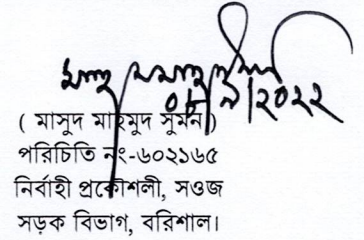 ০৮/৯/২০২২
( মাসুদ মাহমুদ সুমন )
পরিচিতি নং-৬০২১৬৫
নির্বাহী প্রকৌশলী, সওজ
সড়ক বিভাগ, বরিশাল।